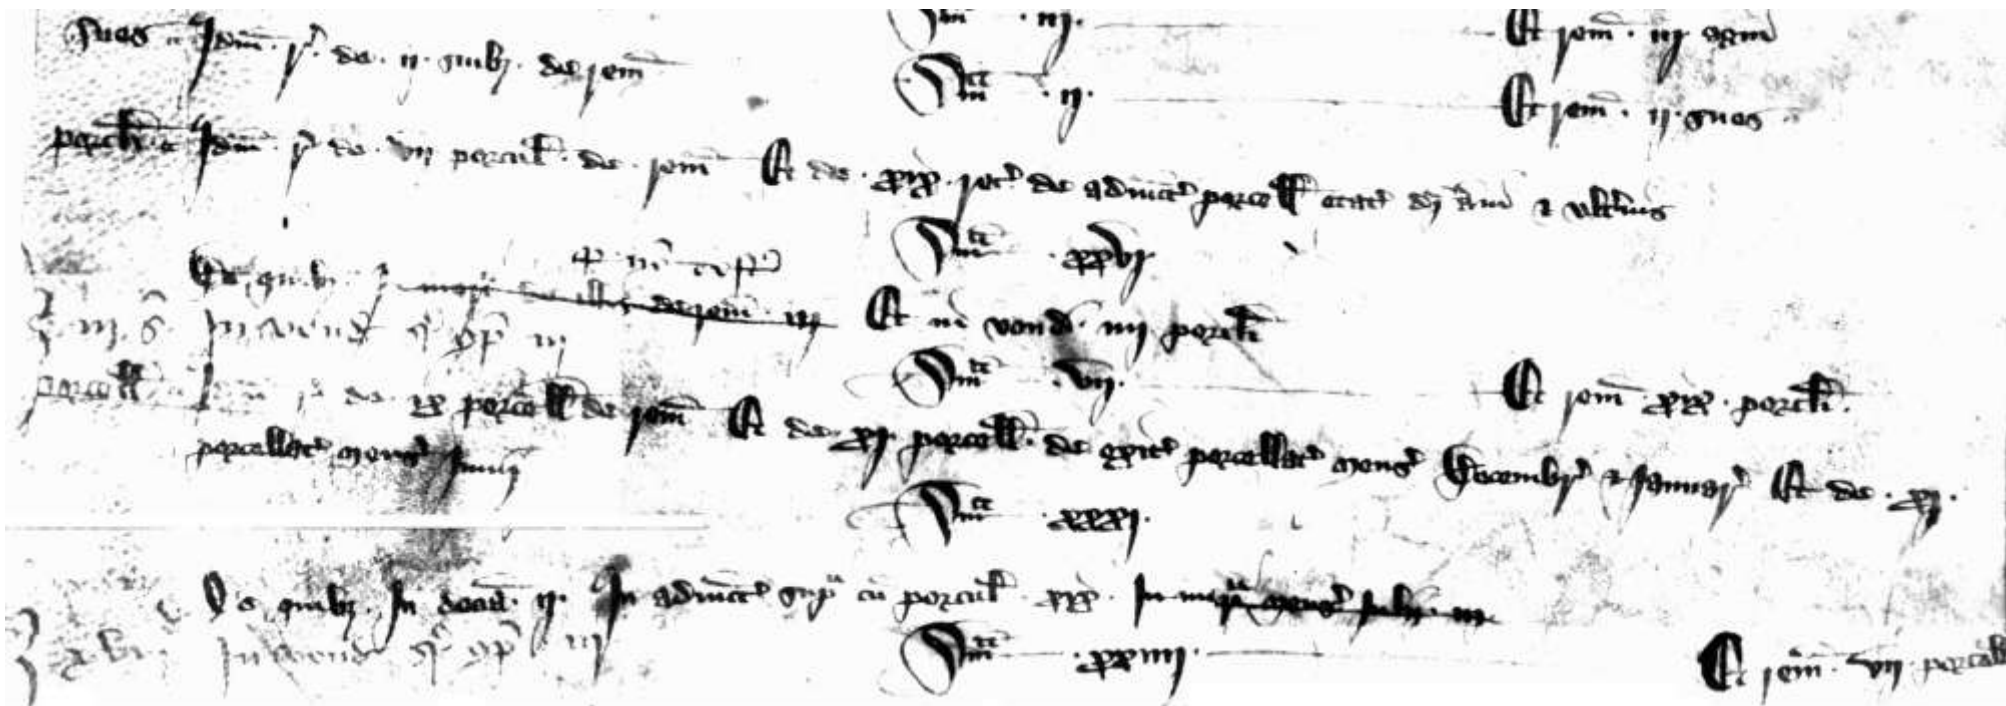 Sm̄ · iij · Et rem̄ · iij apri
Sues Idm̄ · r̄ · de · ij · suibȝ · de rem̄
Sm̄ct · ij · Et rem̄ · ij · sues
porcll̄i Idm̄ · r̄ de · vij porcul̄ · de · rem̄ Et de · xix · rec̄ de adiunct̄ porcell̄ etat̄ di Ani & ultius
Sm̄ct · xxvj
De quibȝ · de rem̄ · iij Et in vend̄ · iiij porcll̄i
iij s̄ In vend̄ sr̄ comp̄ iij
Sm̄ct · vij · Et rem̄ xix · porcll̄i ·
porcell̄ Idm̄ r̄ de · xx porcell̄ de rem̄ Et de xj · porcell̄ · de exit̄ porcellat̄ mens̄ Decembr̄ & Januar̄ Et de · xj ·
porcellat̄ mens̄ Junij
Sm̄ct · xxxj ·
De quibȝ · In decīa · ij · In adiunct̄ supᵃ cū porcul̄ · xix · In mens̄ iij
In vend̄ sr̄ comp̄ iij
Sm̄ct · xxiiij · Et rem̄ · vij · porcell̄